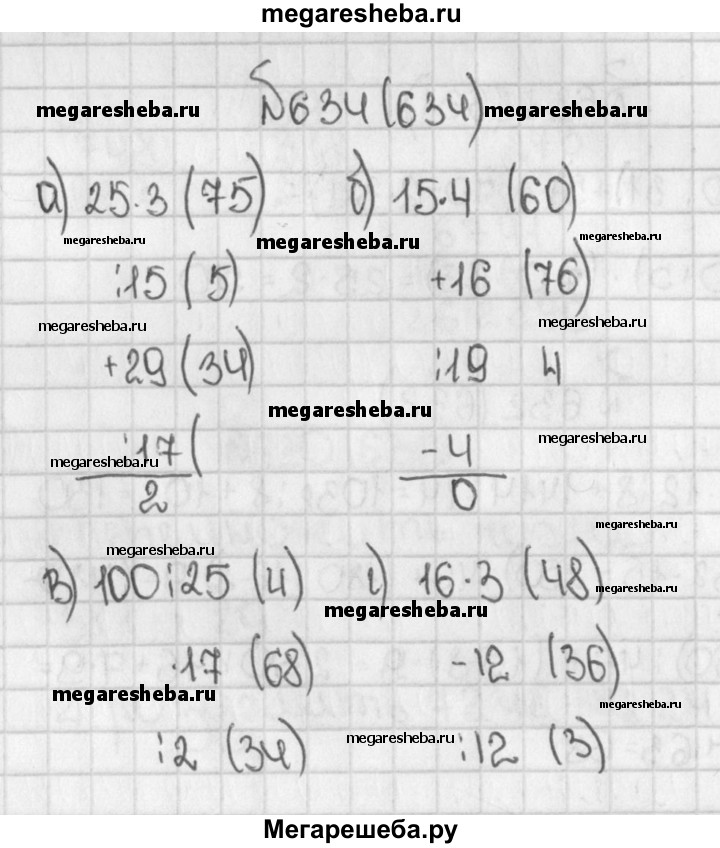 megaresheba.ru
№634(634)
megaresheba.ru megaresheba.ru
а) 25·3 (75) б) 15·4 (60)
megaresheba.ru megaresheba.ru megaresheba.ru
:15 (5) +16 (76)
megaresheba.ru megaresheba.ru
+29 (34) :19 4
megaresheba.ru
:17 ( -4
megaresheba.ru megaresheba.ru
2 0
megaresheba.ru
megaresheba.ru
в) 100:25 (4) г) 16·3 (48)
megaresheba.ru megaresheba.ru
·17 (68) -12 (36)
megaresheba.ru megaresheba.ru
:2 (34) megaresheba.ru :12 (3)
Мегарешеба.ру